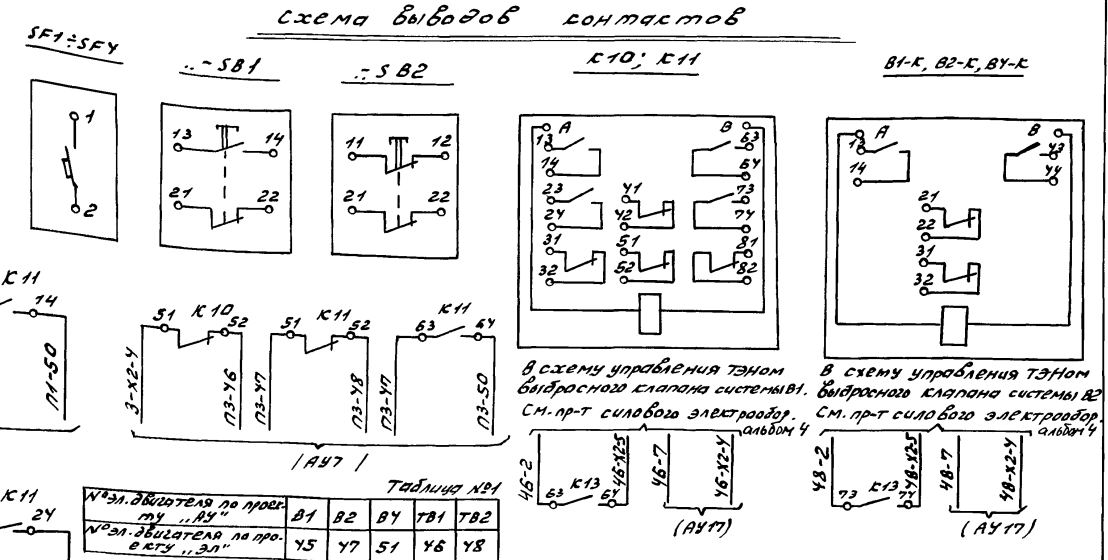 Схема выводов контактов
SF1÷SF4
..-SB1
.-SB2
К10; К11
В1-К, В2-К, В4-К
1
2
13 14
21 22
11 12
21 22
А В
13 63
14 64
23 41 73
24 42 74
31 51 81
32 52 82
А В
13 43
14 44
21
22
31
32
К11
14
П1-50
51 К10 52
3-Х2-4
П3-46
51 К11 52
П3-47
П3-48
63 К11 64
П3-47
П3-50
(АУ7)
В схему управления ТЭНом
выбросного клапана системы В1.
См. пр-т силового электрообор.
альбом 4
46-2
63 К13 64
46-Х2-5
46-7
46-Х2-4
(АУ17)
В схему управления ТЭНом
выбросного клапана системы В2
См. пр-т силового электрообор.
альбом 4
48-2
73 К13 74
48-Х2-5
48-7
48-Х2-4
(АУ17)
К11
24
Таблица №1
№ эл. двигателя по проек-
ту „АУ" В1 В2 В4 ТВ1 ТВ2
№ эл. двигателя по про-
екту „ЭЛ" 45 47 51 46 48